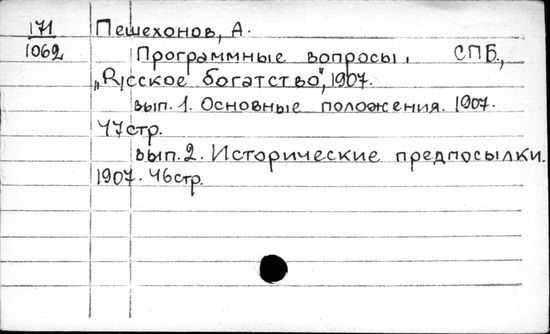 171 Пешехонов, А.
1062
Программные вопросы. СПБ.,
„Русское богатство", 1907.
вып. 1. Основные положения. 1907.
47стр.
вып. 2. Исторические предпосылки.
1907. 46стр.